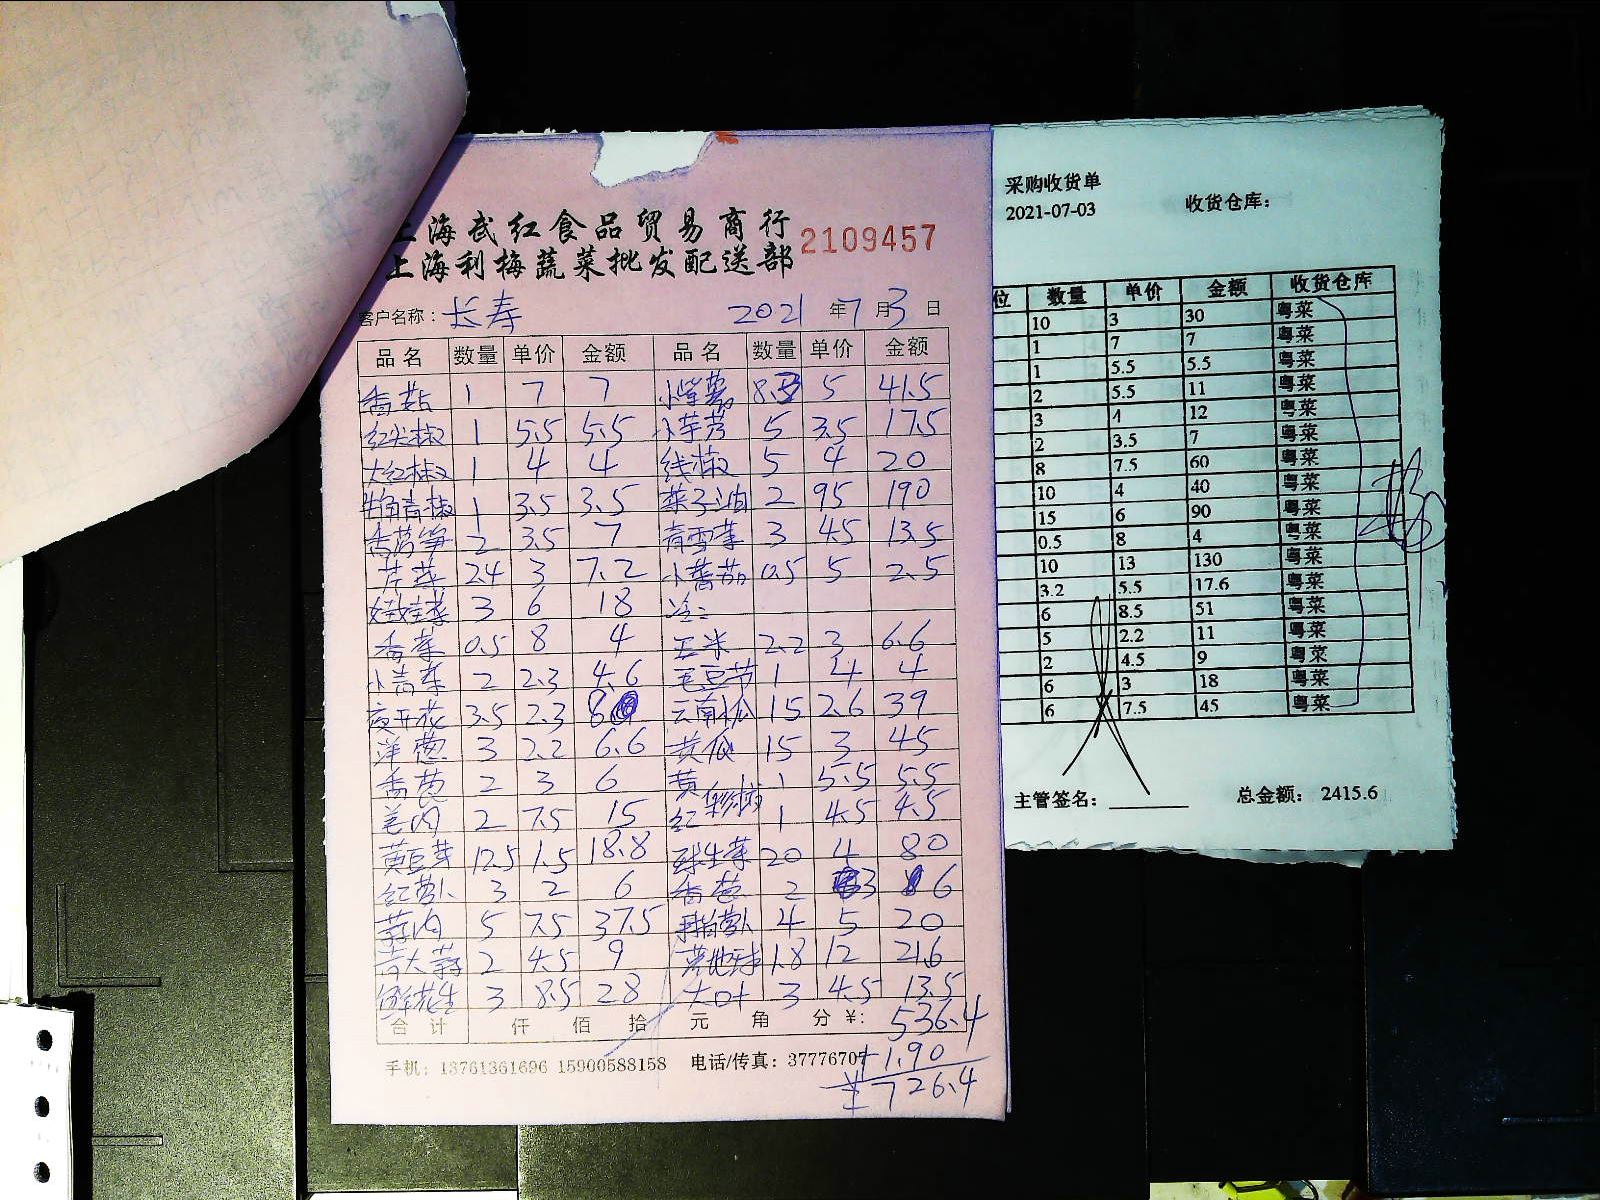 上海武红食品贸易商行
上海利梅蔬菜批发配送部
2109457
客户名称：长寿 2021 年 7 月 3 日
品名 数量 单价 金额 品名 数量 单价 金额
香菇 1 7 7 5 41.5
红尖椒 1 5.5 5.5 小芋艿 5 3.5 17.5
大红椒 1 4 4 线椒 5 4 20
牛角青椒 1 3.5 3.5 菜子油 2 95 190
香莴笋 2 3.5 7 3 4.5 13.5
芹菜 2.4 3 7.2 小蕃茄 0.5 5 2.5
娃娃菜 3 6 18
香菜 0.5 8 4 玉米 2.2 3 6.6
小青菜 2 2.3 4.6 毛豆节 1 4 4
夜开花 3.5 2.3 8 云南小瓜 15 2.6 39
洋葱 3 2.2 6.6 黄瓜 15 3 45
香葱 2 3 6 黄 1 5.5 5.5
姜肉 2 7.5 15 红彩椒 1 4.5 4.5
黄豆芽 12.5 1.5 18.8 球生菜 20 4 80
红萝卜 3 2 6 香葱 2 3 6
蒜肉 5 7.5 37.5 4 5 20
青大蒜 2 4.5 9 1.8 12 21.6
鲜花生 3 8.5 28 大叶 3 4.5 13.5
合计 仟 佰 拾 元 角 分 ¥: 536.4
+190
¥726.4
手机：13761361696 15900588158 电话/传真：37776707
采购收货单
2021-07-03 收货仓库：
位 数量 单价 金额 收货仓库
10 3 30 粤菜
1 7 7 粤菜
1 5.5 5.5 粤菜
2 5.5 11 粤菜
3 4 12 粤菜
2 3.5 7 粤菜
8 7.5 60 粤菜
10 4 40 粤菜
15 6 90 粤菜
0.5 8 4 粤菜
10 13 130 粤菜
3.2 5.5 17.6 粤菜
6 8.5 51 粤菜
5 2.2 11 粤菜
2 4.5 9 粤菜
6 3 18 粤菜
6 7.5 45 粤菜
主管签名： 总金额： 2415.6